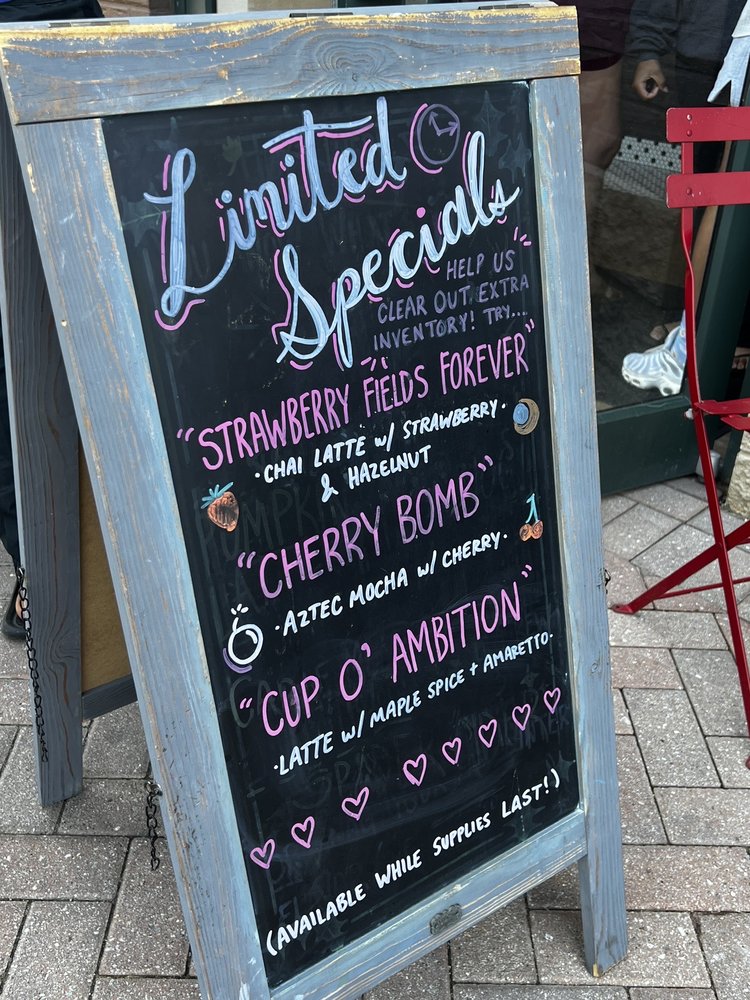 Limited
Specials
HELP US
CLEAR OUT EXTRA
INVENTORY! TRY...
"STRAWBERRY FIELDS FOREVER"
·CHAI LATTE w/ STRAWBERRY·
& HAZELNUT
"CHERRY BOMB"
·AZTEC MOCHA w/ CHERRY·
"CUP O' AMBITION"
·LATTE w/ MAPLE SPICE + AMARETTO·
(AVAILABLE WHILE SUPPLIES LAST!)